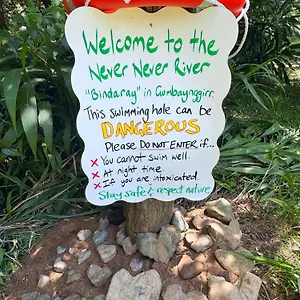 Welcome to the
Never Never River
"Bindaray" in Gumbaynggirr.
This swimming hole can be
DANGEROUS
Please DO NOT ENTER if...
x You cannot swim well.
x At night time.
x If you are intoxicated.
Stay safe & respect nature